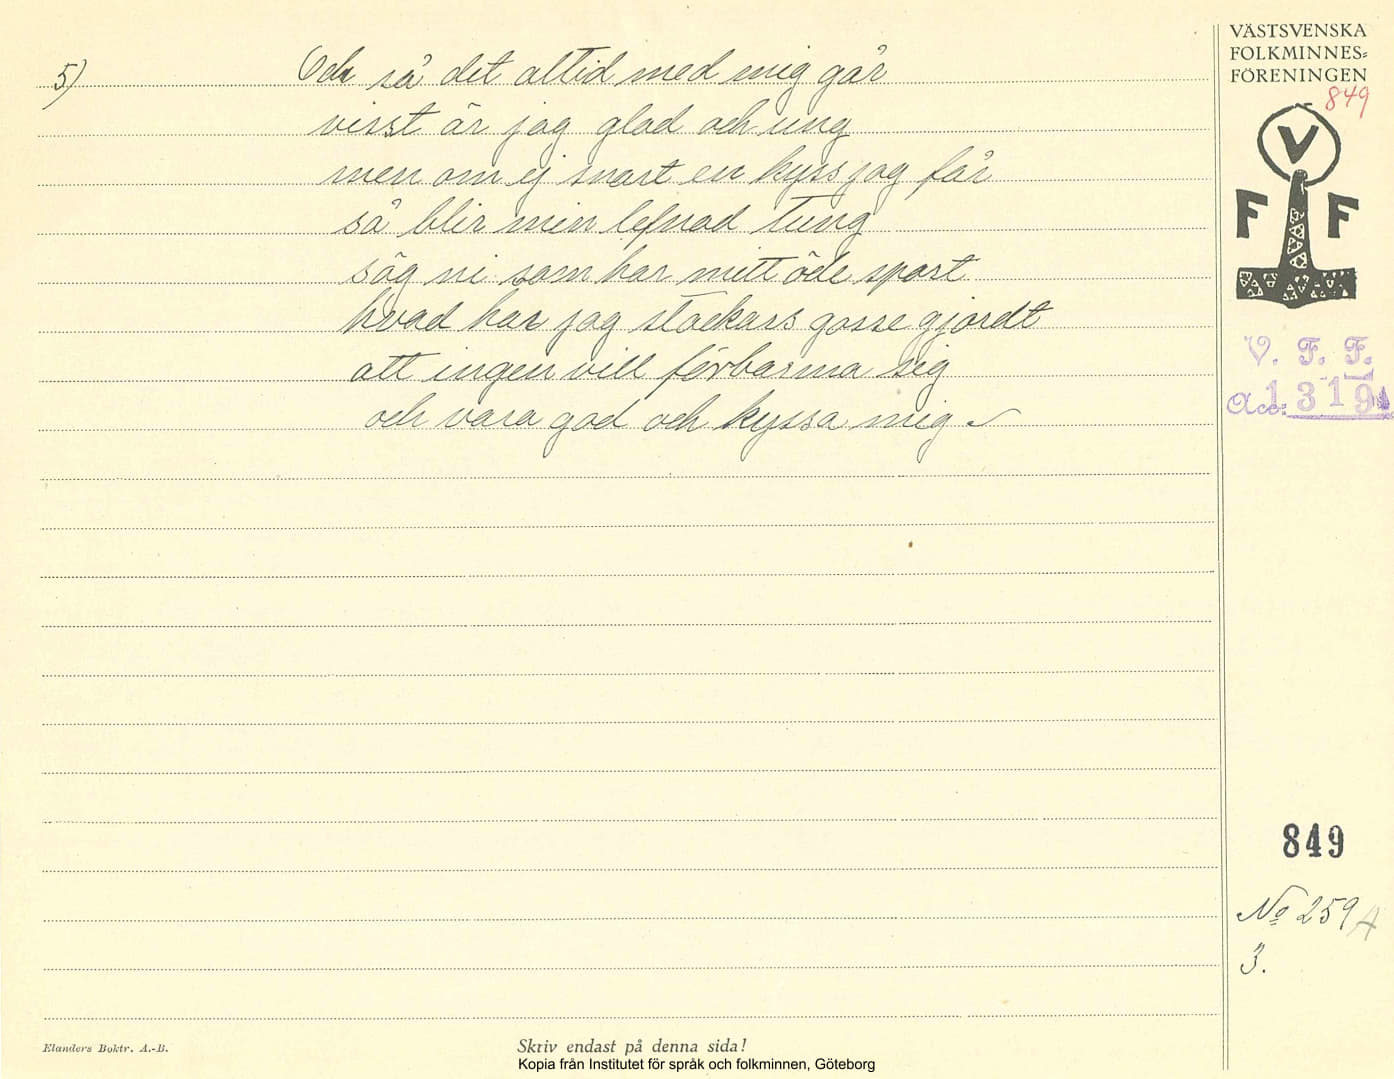 5) Och så det alltid med mig går
visst är jag glad och ung
men om ej snart en kyss jag får
så blir min lefnad tung
säg ni som har mitt öde sport
hvad har jag stackars gosse gjordt
att ingen vill förbarma sig
och vara god och kyssa mig
VÄSTSVENSKA
FOLKMINNES=
FÖRENINGEN
849
V
F F
V. F. F.
Acc: 1319
849
No 259 A
3.
Elanders Boktr. A.-B.
Skriv endast på denna sida!
Kopia från Institutet för språk och folkminnen, Göteborg